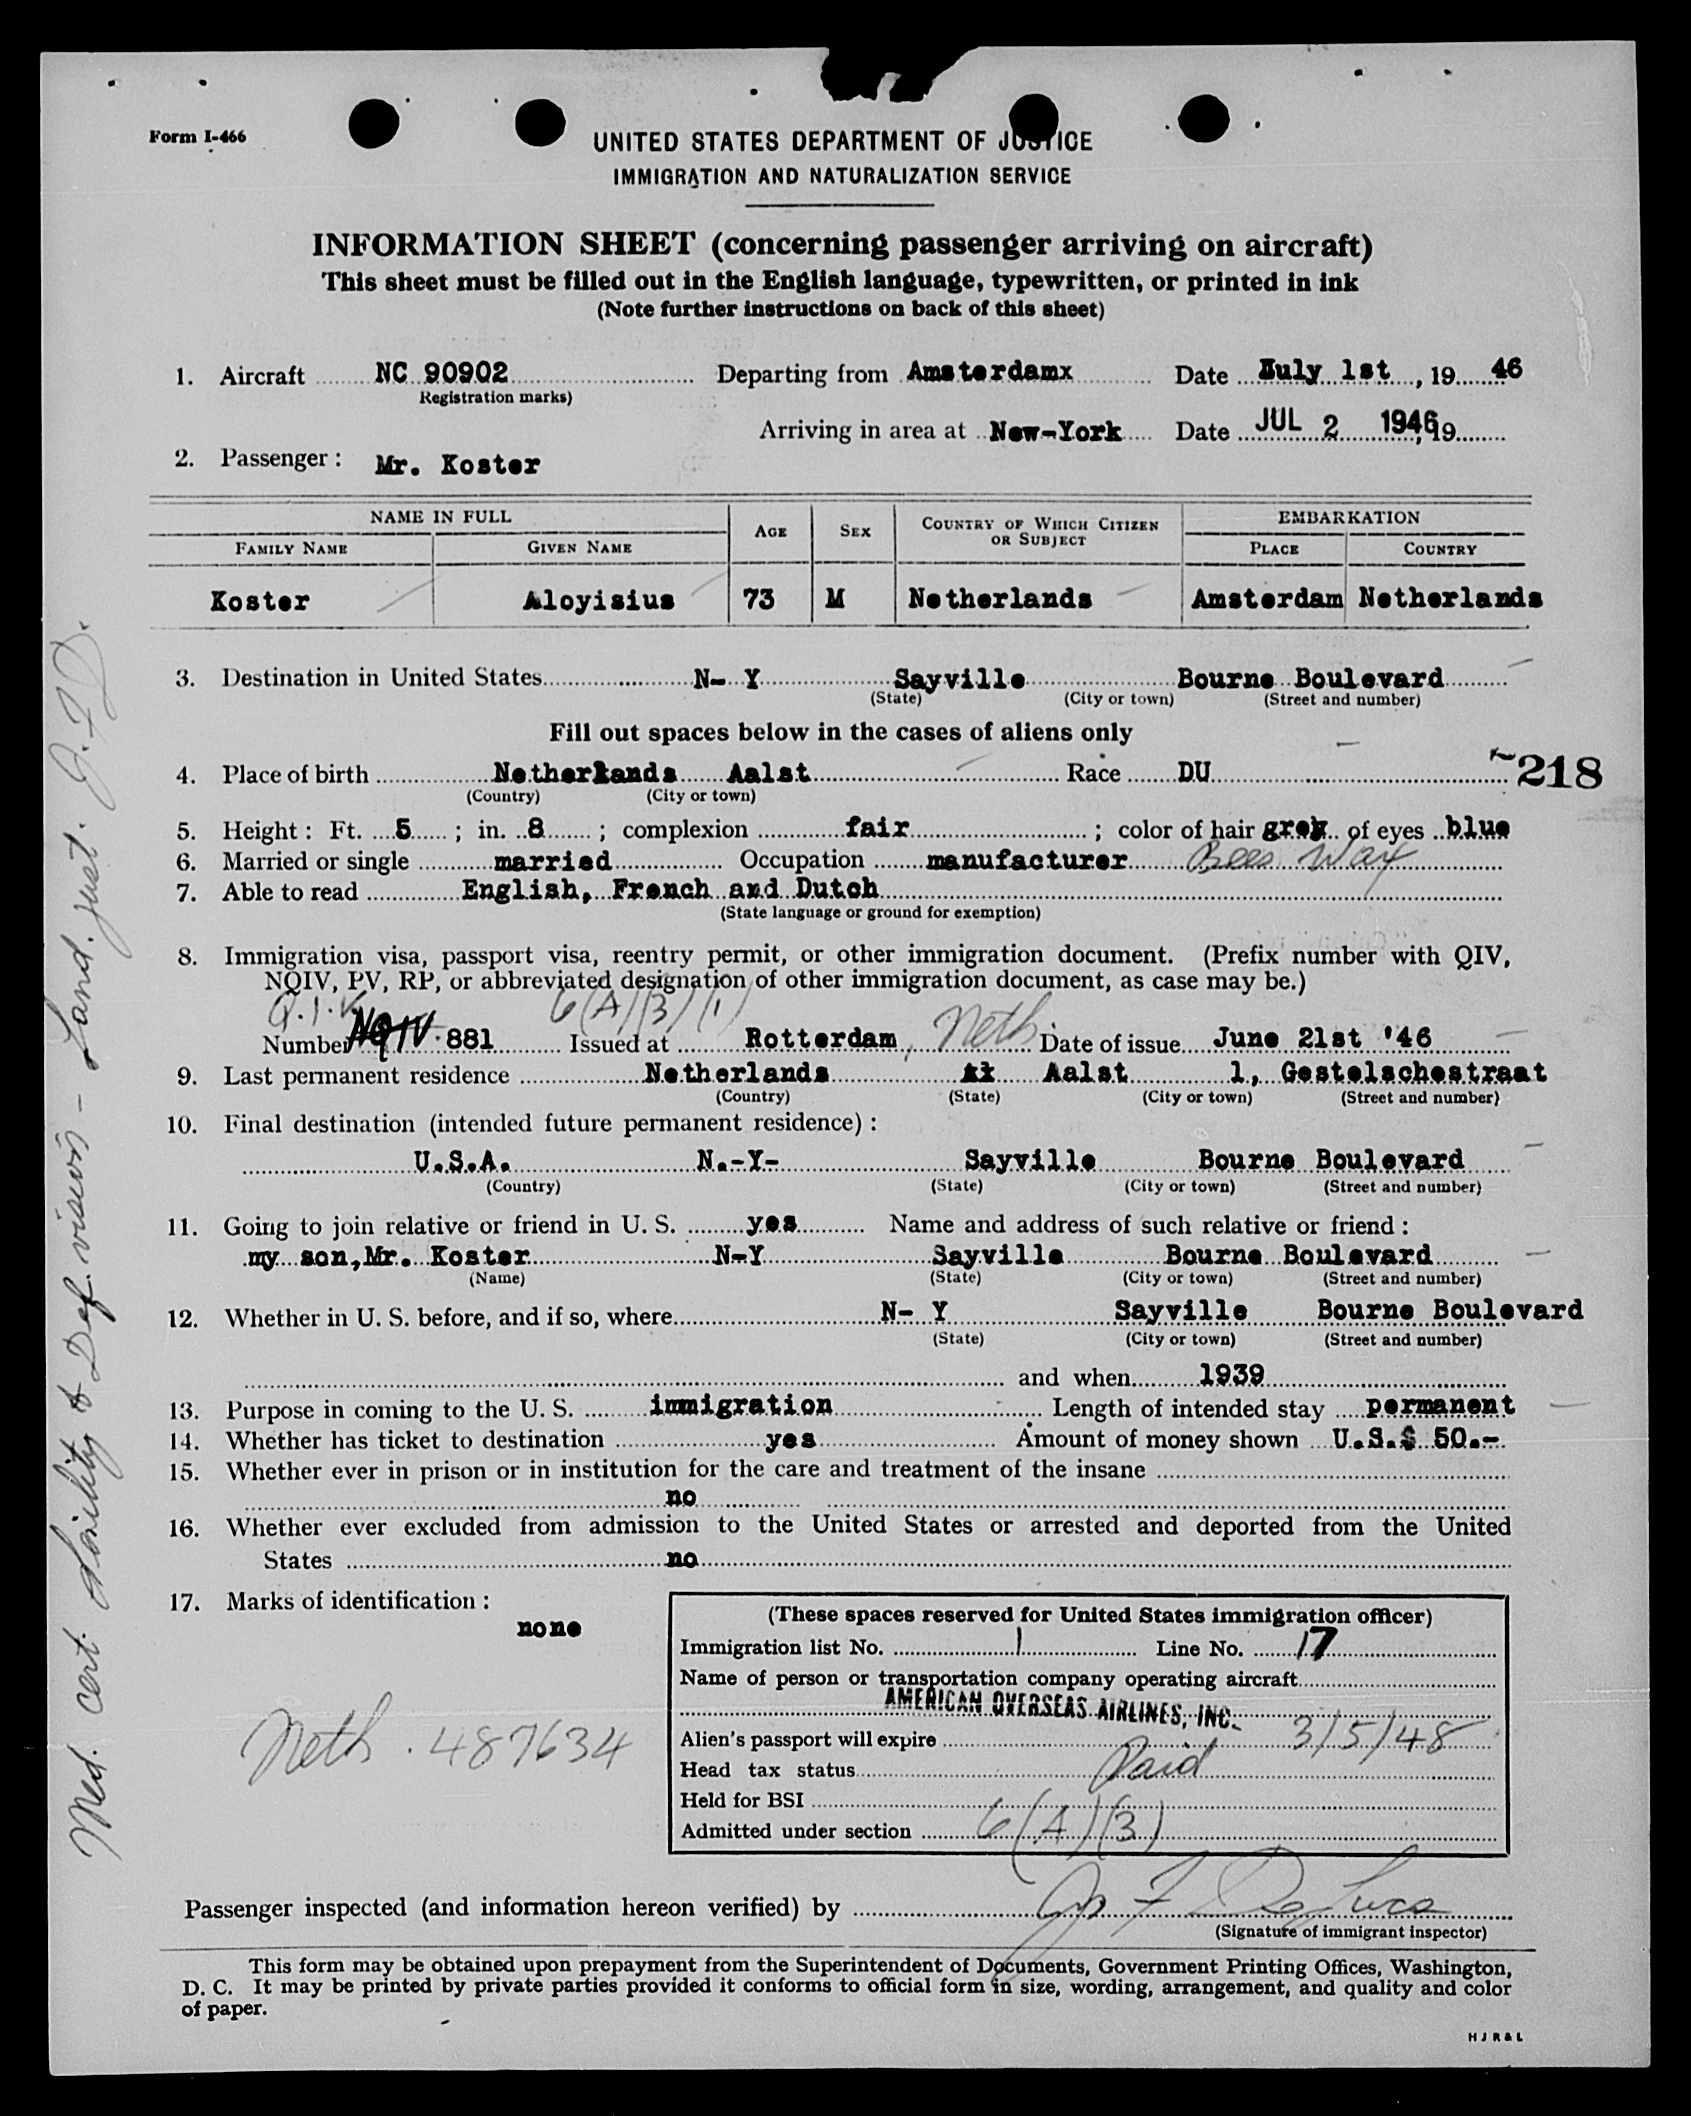 Form I-466
UNITED STATES DEPARTMENT OF JUSTICE
IMMIGRATION AND NATURALIZATION SERVICE
INFORMATION SHEET (concerning passenger arriving on aircraft)
This sheet must be filled out in the English language, typewritten, or printed in ink
(Note further instructions on back of this sheet)
1. Aircraft NC 90902 Departing from Amsterdamx Date July 1st, 1946
Registration marks)
Arriving in area at New-York Date JUL 2 1946, 19
2. Passenger: Mr. Koster
NAME IN FULL AGE SEX COUNTRY OF WHICH CITIZEN OR SUBJECT EMBARKATION
FAMILY NAME GIVEN NAME PLACE COUNTRY
Koster Aloyisius 73 M Netherlands Amsterdam Netherlands
3. Destination in United States N- Y Sayville Bourne Boulevard
(State) (City or town) (Street and number)
Fill out spaces below in the cases of aliens only
4. Place of birth Netherlands Aalst Race DU 218
(Country) (City or town)
5. Height: Ft. 5; in. 8; complexion fair; color of hair grey of eyes blue
6. Married or single married Occupation manufacturer Bees Wax
7. Able to read English, French and Dutch
(State language or ground for exemption)
8. Immigration visa, passport visa, reentry permit, or other immigration document. (Prefix number with QIV,
NQIV, PV, RP, or abbreviated designation of other immigration document, as case may be.)
Q.I.V. 6(A)(3)(1)
Number NQIV 881 Issued at Rotterdam, Neth Date of issue June 21st '46
9. Last permanent residence Netherlands Aalst 1, Gestelschestraat
(Country) (State) (City or town) (Street and number)
10. Final destination (intended future permanent residence):
U.S.A. N.-Y- Sayville Bourne Boulevard
(Country) (State) (City or town) (Street and number)
11. Going to join relative or friend in U. S. yes Name and address of such relative or friend:
my son,Mr. Koster N-Y Sayville Bourne Boulevard
(Name) (State) (City or town) (Street and number)
12. Whether in U. S. before, and if so, where N- Y Sayville Bourne Boulevard
(State) (City or town) (Street and number)
and when 1939
13. Purpose in coming to the U. S. immigration Length of intended stay permanent
14. Whether has ticket to destination yes Amount of money shown U.S.$ 50.-
15. Whether ever in prison or in institution for the care and treatment of the insane
no
16. Whether ever excluded from admission to the United States or arrested and deported from the United
States no
17. Marks of identification:
none
(These spaces reserved for United States immigration officer)
Immigration list No. 1 Line No. 17
Name of person or transportation company operating aircraft
AMERICAN OVERSEAS AIRLINES, INC.
Alien's passport will expire 3/5/48
Head tax status Paid
Held for BSI
Admitted under section 6(A)(3)
Neth. 487634
Passenger inspected (and information hereon verified) by
(Signature of immigrant inspector)
This form may be obtained upon prepayment from the Superintendent of Documents, Government Printing Offices, Washington,
D. C. It may be printed by private parties provided it conforms to official form in size, wording, arrangement, and quality and color
of paper.
H J R & L
Med. cert. Senility & Def. vision - Land. just. J.F.D.